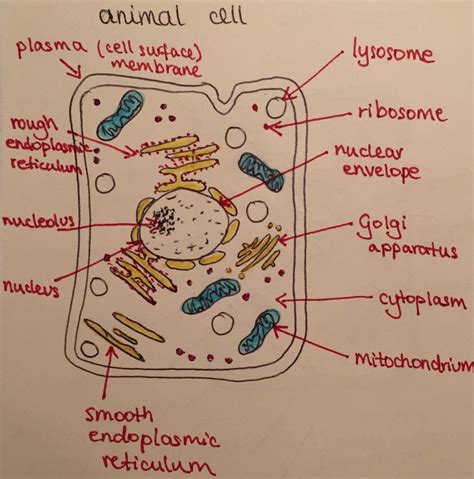 animal cell
plasma (cell surface)
membrane
lysosome
ribosome
rough
endoplasmic
reticulum
nuclear
envelope
nucleolus
Golgi
apparatus
nucleus
cytoplasm
mitochondrium
smooth
endoplasmic
reticulum